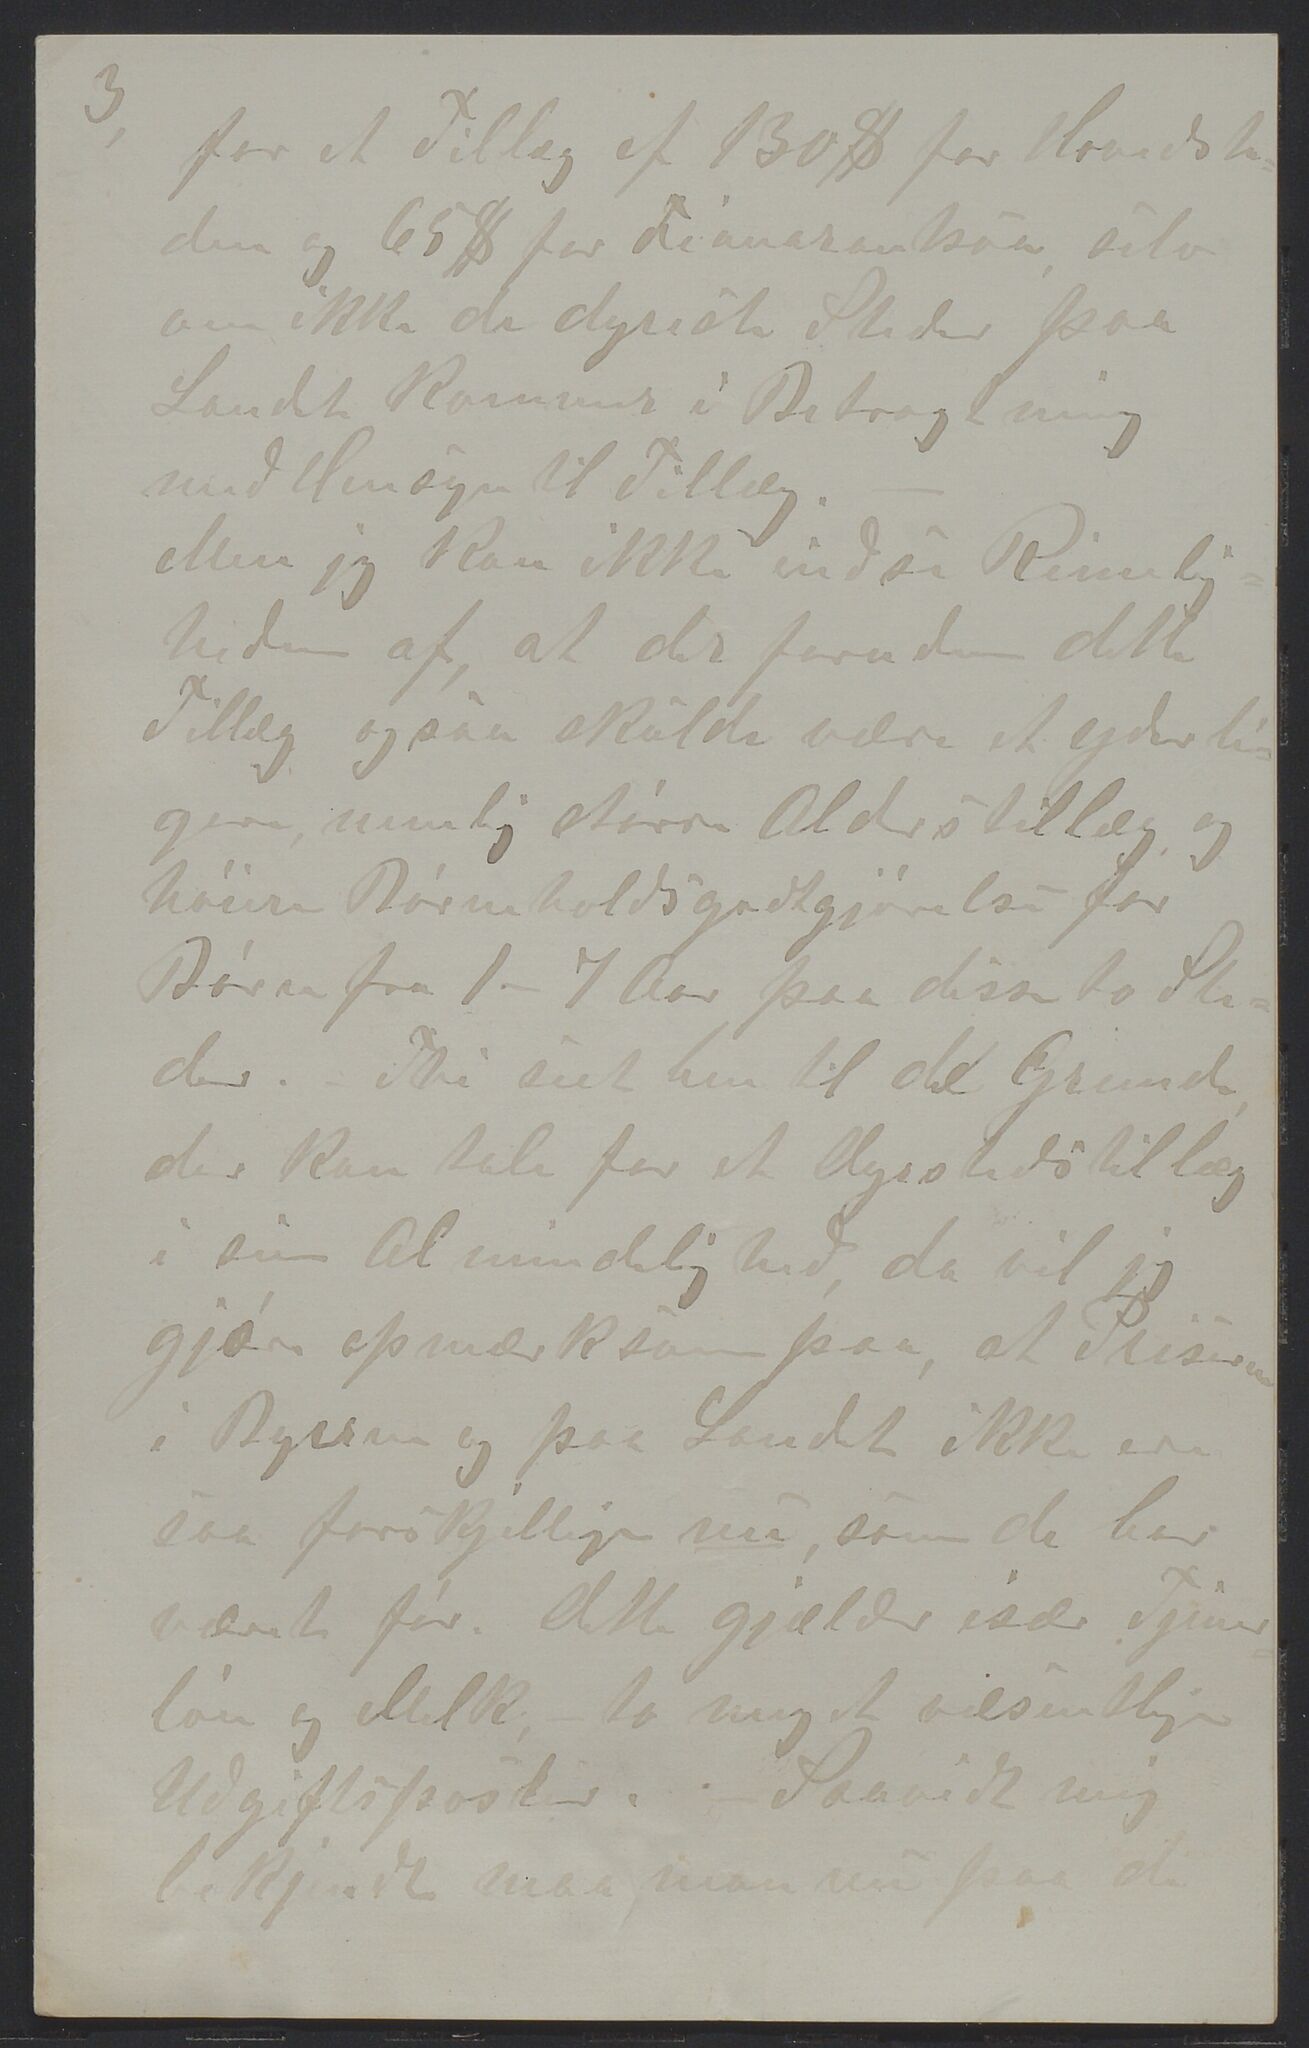 3,
for et Tillæg af 130 $ for Hovedsta=
den og 65 $ for Fianarantsoa, selv
om ikke de dyreste Steder paa
Landet kommer i Betragtning
med Hensyn til Tillæg. —
Men jeg kan ikke indse Rimelig=
heden af, at der foruden dette
Tillæg ogsaa skulde være et yderli=
gere, nemlig større Alderstillæg og
høiere Børneholdsgodtgjørelse for
Børn fra 1 – 7 Aar paa disse to Ste=
der. – Thi seet hen til de Grunde,
der kan tale for et Dyrstedstillæg
i sin Almindelighed, da vil jeg
gjøre opmærksom paa, at Priserne
i Byerne og paa Landet ikke ere
saa forskjellige nu, som de har
været før. Dette gjælder især Tjener=
løn og Melk, – to meget væsentlige
Udgiftsposter. – Saavidt mig
bekjendt maa man nu paa de